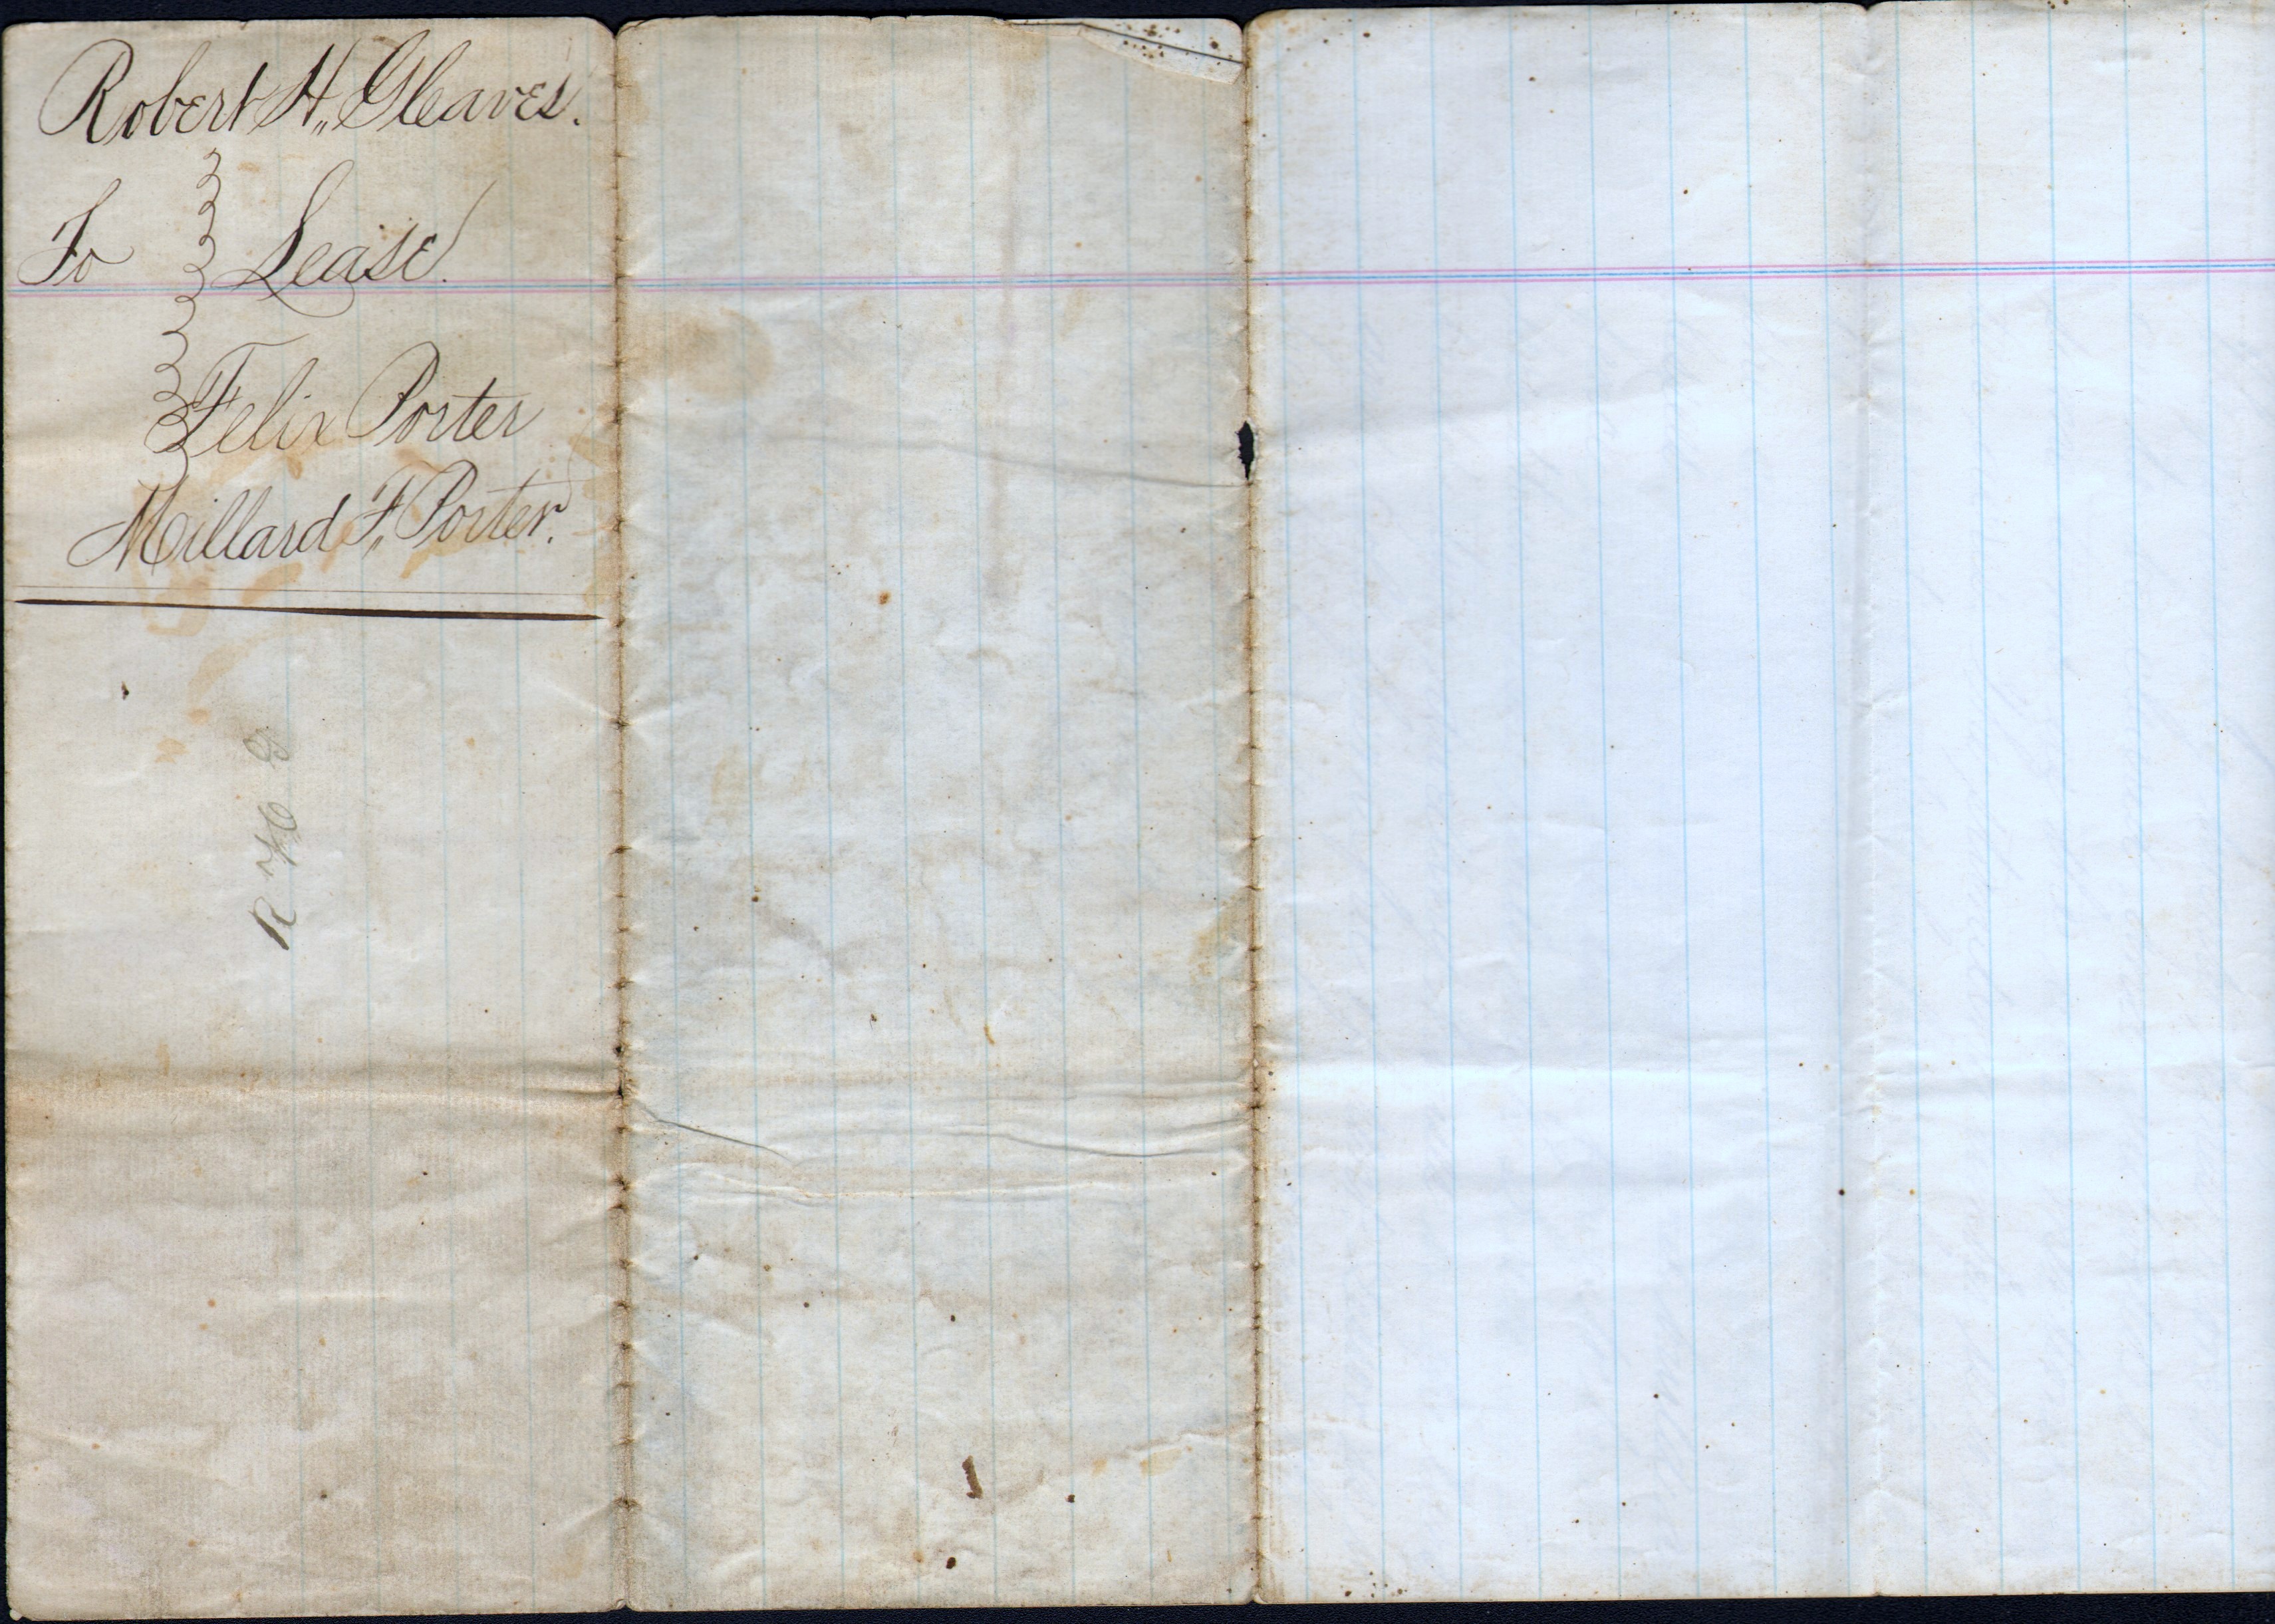 Robert H. Gleaves.
To } Lease.
Felix Porter
Millard F. Porter.
R H G